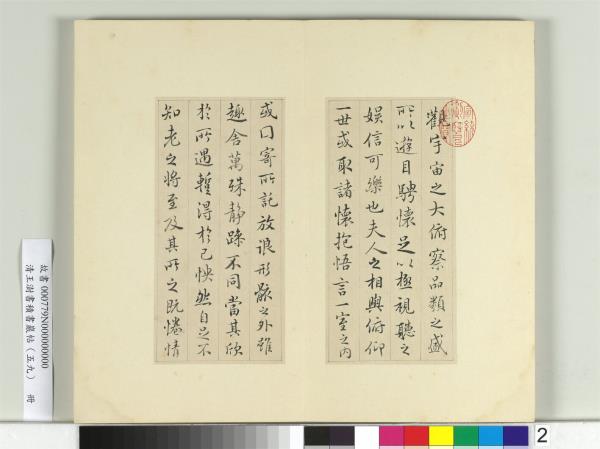 觀宇宙之大俯察品類之盛
所以遊目騁懷足以極視聽之
娛信可樂也夫人之相與俯仰
一世或取諸懷抱悟言一室之內
或因寄所託放浪形骸之外雖
趣舍萬殊静躁不同當其欣
於所遇暫得於己怏然自足不
知老之將至及其所之既惓情
故書 000779N000000000
清王澍書積書巖帖(五九) 冊
2